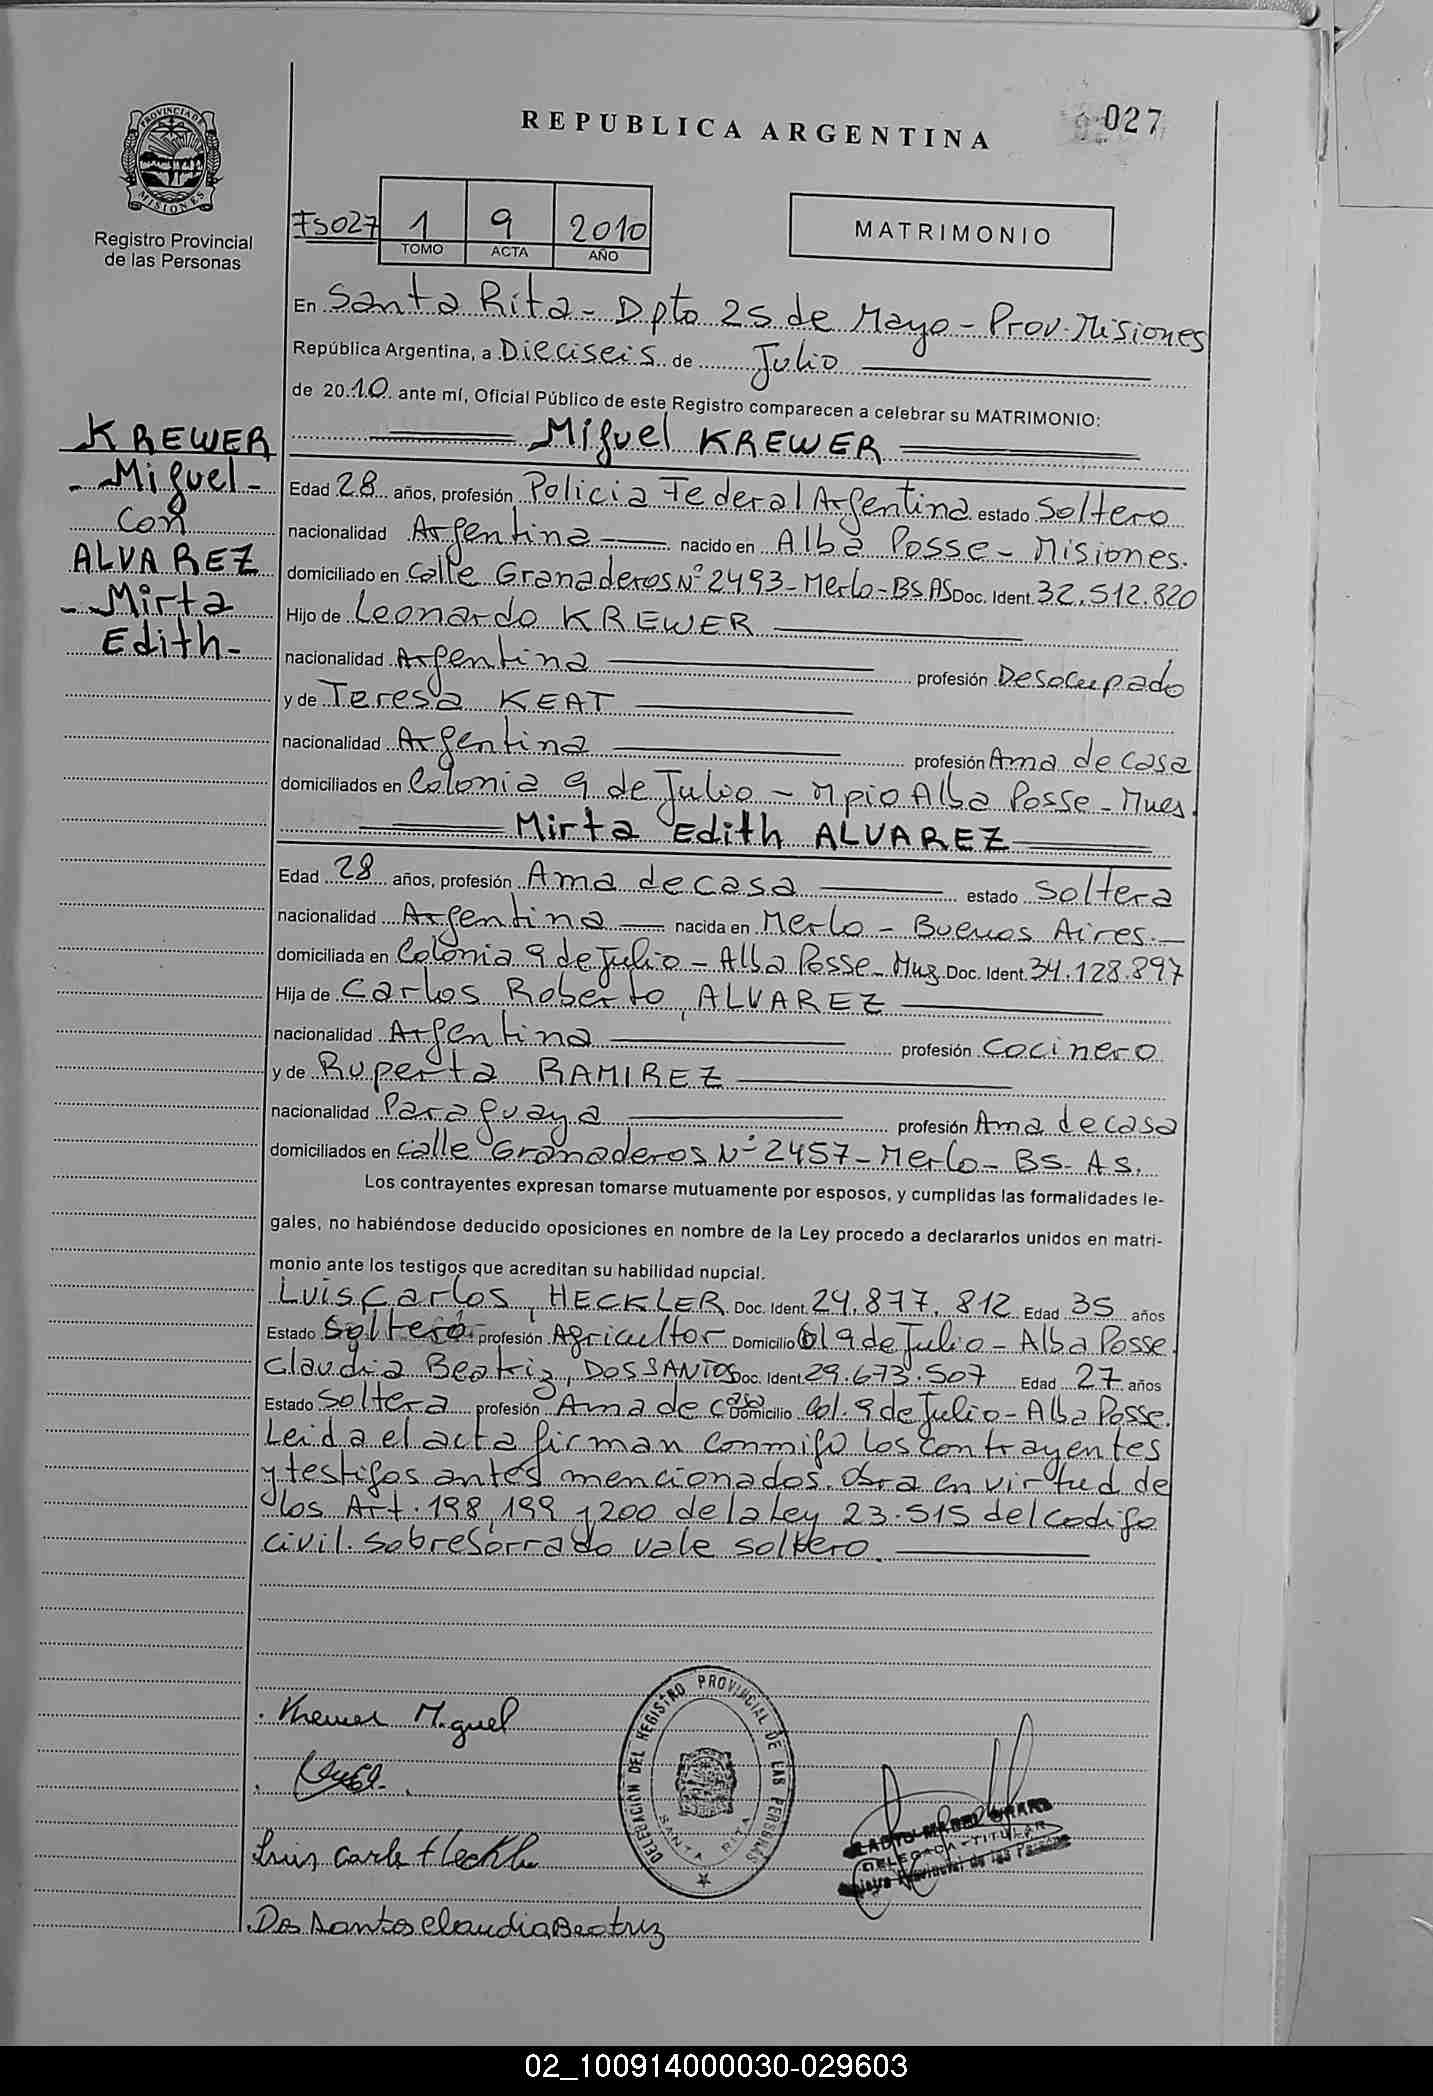 REPUBLICA ARGENTINA
027
PROVINCIA DE MISIONES
Registro Provincial
de las Personas
Fs027
1
9
2010
TOMO
ACTA
AÑO
MATRIMONIO
KREWER
- Miguel -
con
ALVAREZ
- Mirta
Edith -
En Santa Rita - Dpto 25 de Mayo - Prov. Misiones
República Argentina, a Dieciseis de Julio
de 2010 ante mí, Oficial Público de este Registro comparecen a celebrar su MATRIMONIO:
Miguel KREWER
Edad 28 años, profesión Policia Federal Argentina estado Soltero
nacionalidad Argentina nacido en Alba Posse - Misiones.
domiciliado en Calle Granaderos Nº 2493 - Merlo - BS AS Doc. Ident. 32.512.820
Hijo de Leonardo KREWER
nacionalidad Argentina profesión Desocupado
y de Teresa KEAT
nacionalidad Argentina profesión Ama de casa
domiciliados en Colonia 9 de Julio - Mpio Alba Posse - Mnes.
Mirta Edith ALVAREZ
Edad 28 años, profesión Ama de casa estado Soltera
nacionalidad Argentina nacida en Merlo - Buenos Aires.
domiciliada en Colonia 9 de Julio - Alba Posse - Mnes Doc. Ident. 34.128.897
Hija de Carlos Roberto, ALVAREZ
nacionalidad Argentina profesión Cocinero
y de Ruperta RAMIREZ
nacionalidad Paraguaya profesión Ama de casa
domiciliados en Calle Granaderos Nº 2457 - Merlo - BS. AS.
Los contrayentes expresan tomarse mutuamente por esposos, y cumplidas las formalidades le-
gales, no habiéndose deducido oposiciones en nombre de la Ley procedo a declararlos unidos en matri-
monio ante los testigos que acreditan su habilidad nupcial.
Luis Carlos, HECKLER Doc. Ident. 24.877.812 Edad 35 años
Estado Soltero profesión Agricultor Domicilio Col 9 de Julio - Alba Posse.
Claudia Beatriz, DOS SANTOS Doc. Ident. 29.673.507 Edad 27 años
Estado Soltera profesión Ama de casa Domicilio Col. 9 de Julio - Alba Posse.
Leida el acta firman conmigo los contrayentes
y testigos antes mencionados. Obra en virtud de
los Art. 198, 199 y 200 de la Ley 23.515 del Codigo
civil. Sobreborrado vale soltero.
Krewer Miguel
DELEGACIÓN DEL REGISTRO PROVINCIAL DE LAS PERSONAS
SANTA RITA
DELEGADA - TITULAR
Provincial de las Personas
Luis Carlo Heckler
Dos Santos Claudia Beatriz
02_100914000030-029603